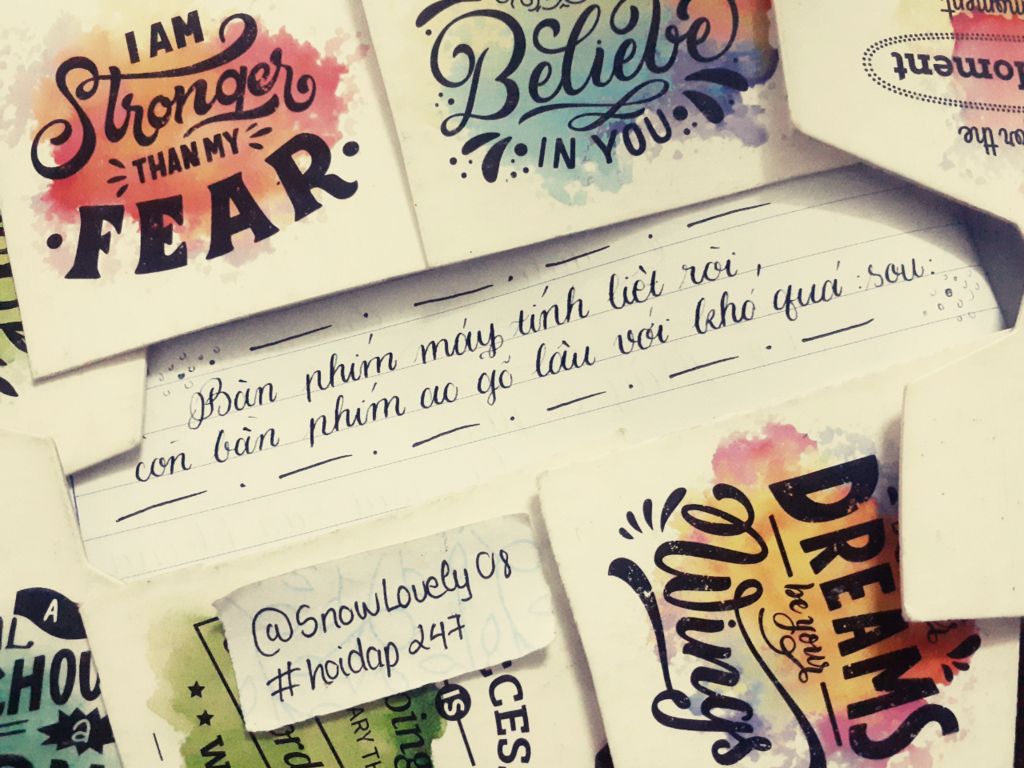 I AM
Stronger
THAN MY
FEAR
Believe
IN YOU
Moment
for the
Bàn phím máy tính liệt rồi,
còn bàn phím ao gõ lâu với khó quá :sou:
@SnowLovely08
#hoidap247
DREAMS
be your
Wings
A
CHOU
a